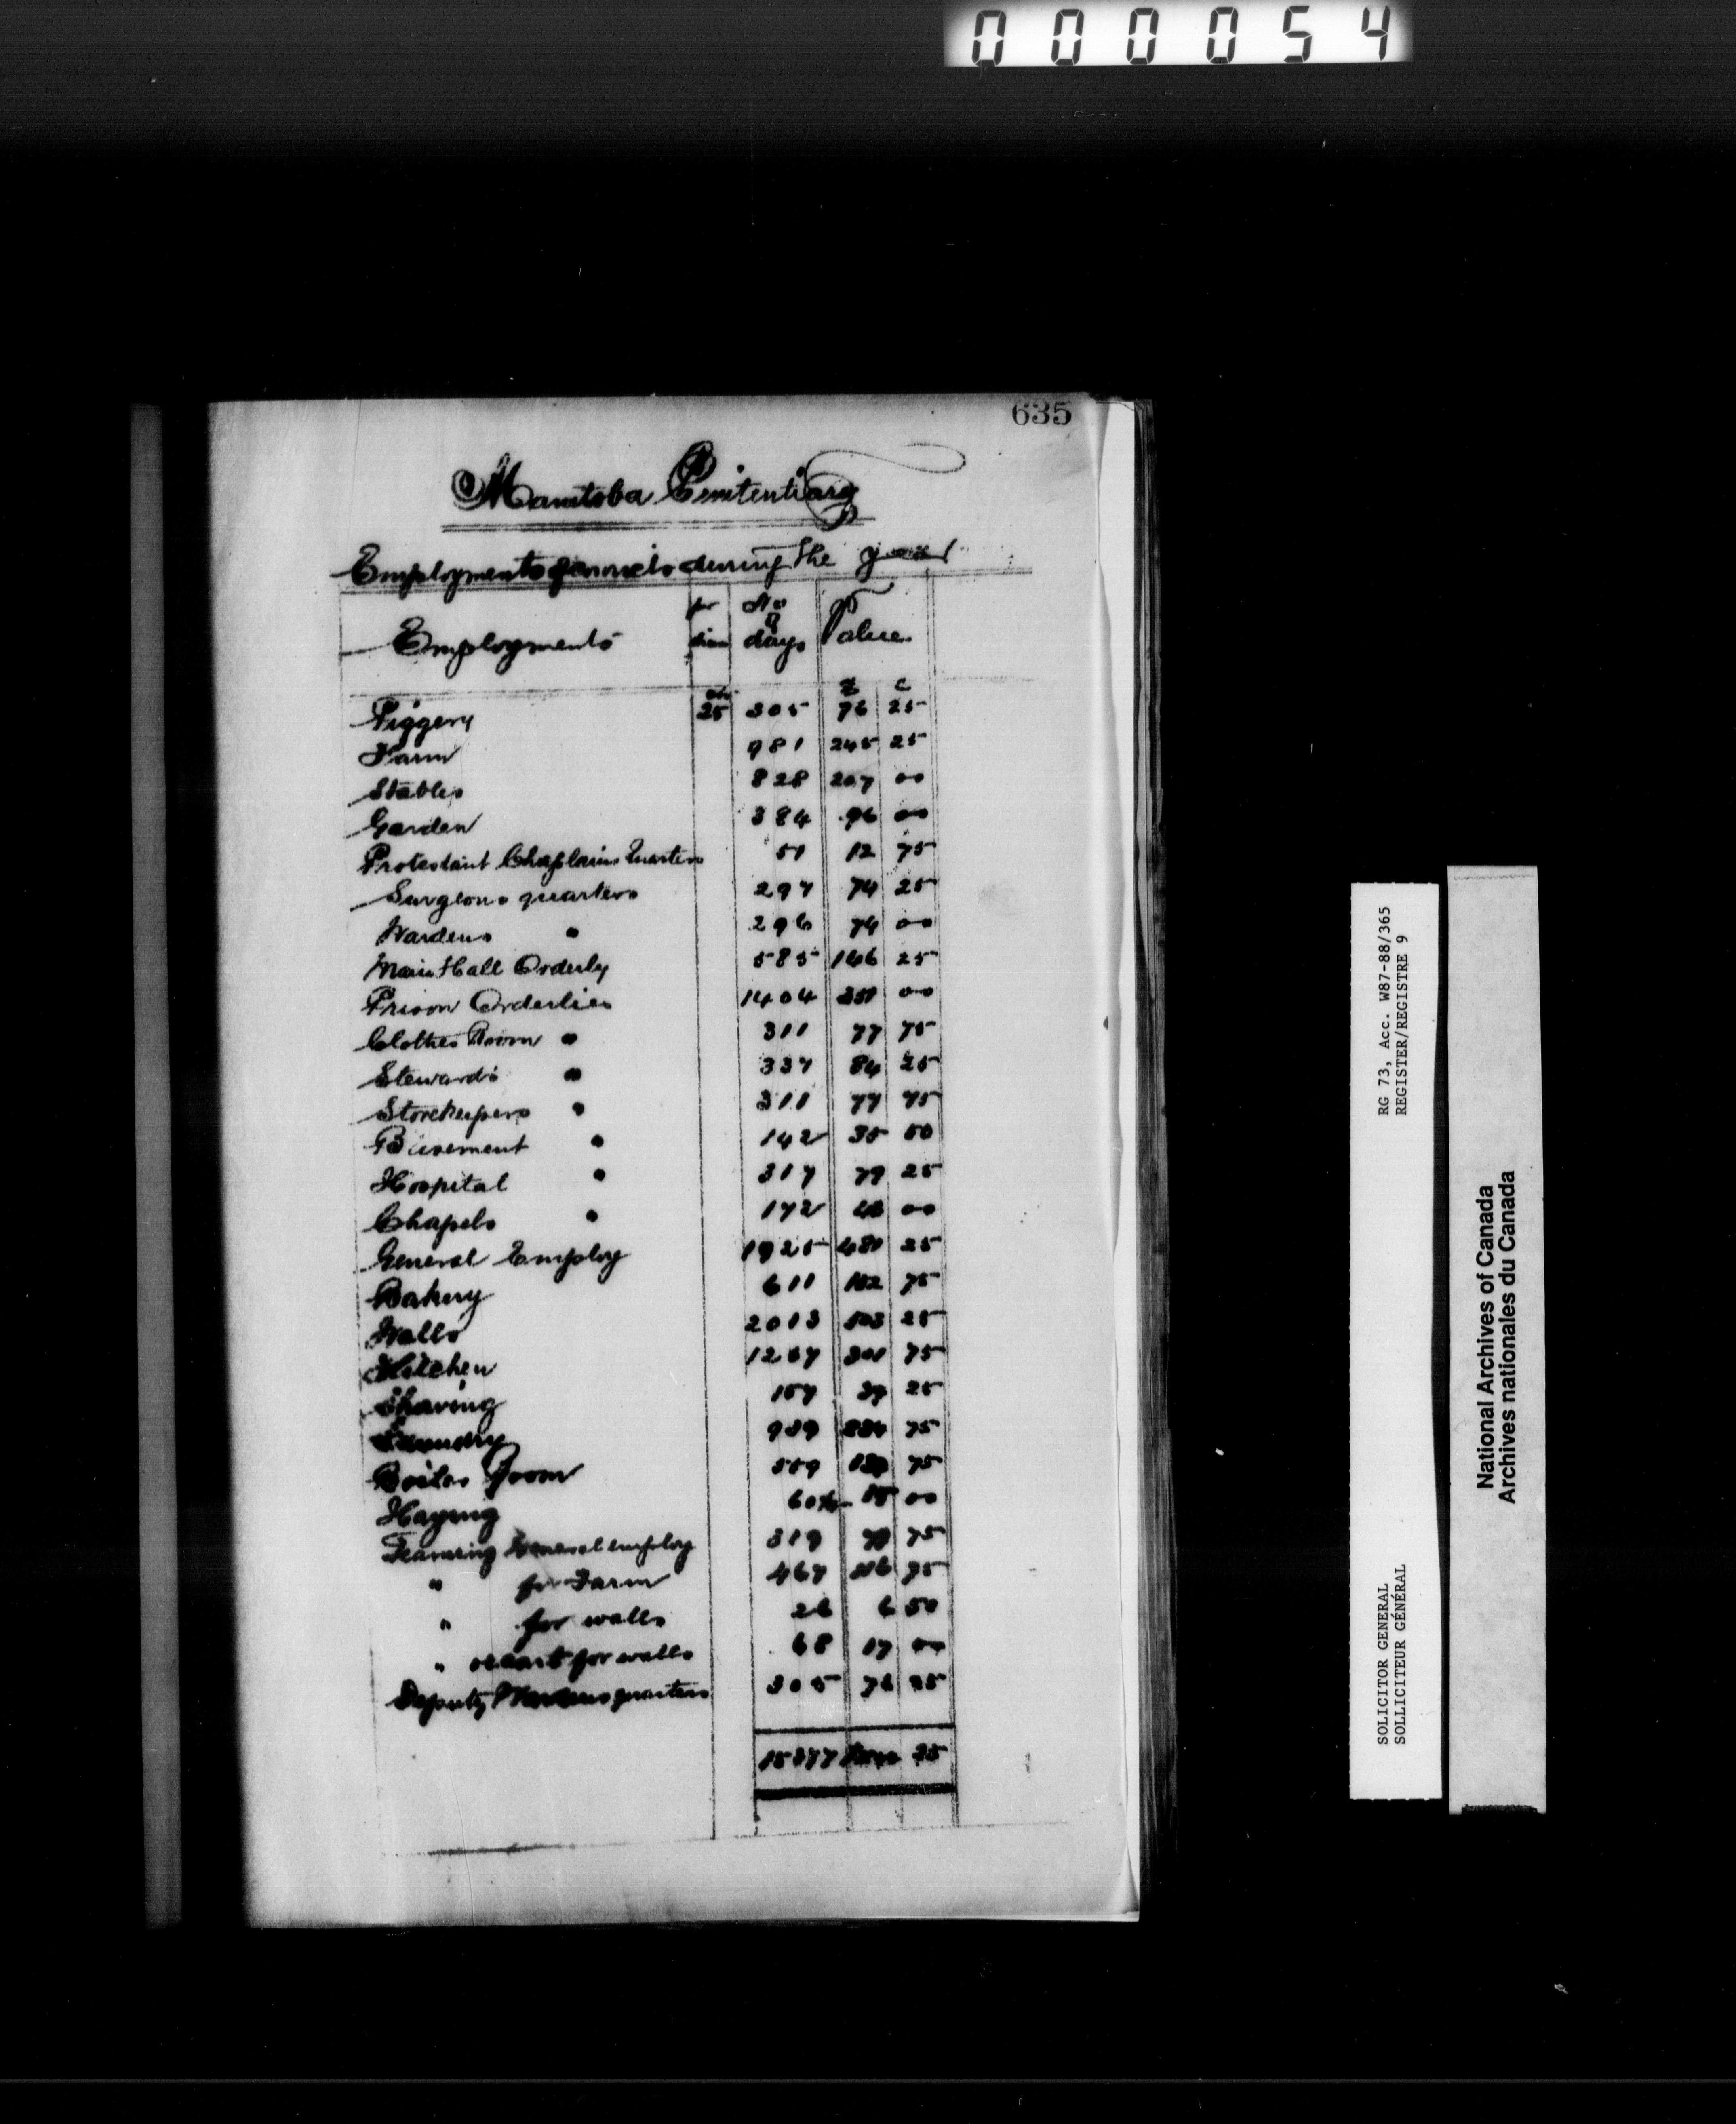 000054
635
Manitoba Penitentiary
Employment of convicts during the year
Employments per diem No of days Value
cts $ c
Piggery 25 305 76 25
Farm 981 245 25
Stables 828 207 00
Garden 384 96 00
Protestant Chaplains Quarters 51 12 75
Surgeons quarters 297 74 25
Wardens " 296 74 00
Main Hall Orderly 585 146 25
Prison Orderlies 1404 351 00
Clothes Room " 311 77 75
Stewards " 337 84 25
Storekeepers " 311 77 75
Basement " 142 35 50
Hospital " 317 79 25
Chapels " 172 43 00
General Employ 1925 481 25
Bakery 611 152 75
Walls 2013 503 25
Kitchen 1267 75
Shaving 157 39 25
Laundry 939 234 75
Boiler Room 559 139 75
Haying 60 15 00
Teaming General employ 319 79 75
" for Farm 467 116 75
" for walls 26 6 50
" ox cart for walls 68 17 00
Deputy Wardens quarters 305 76 25
15377 25
RG 73, Acc. W87-88/365
REGISTER/REGISTRE 9
SOLICITOR GENERAL
SOLLICITEUR GÉNÉRAL
National Archives of Canada
Archives nationales du Canada